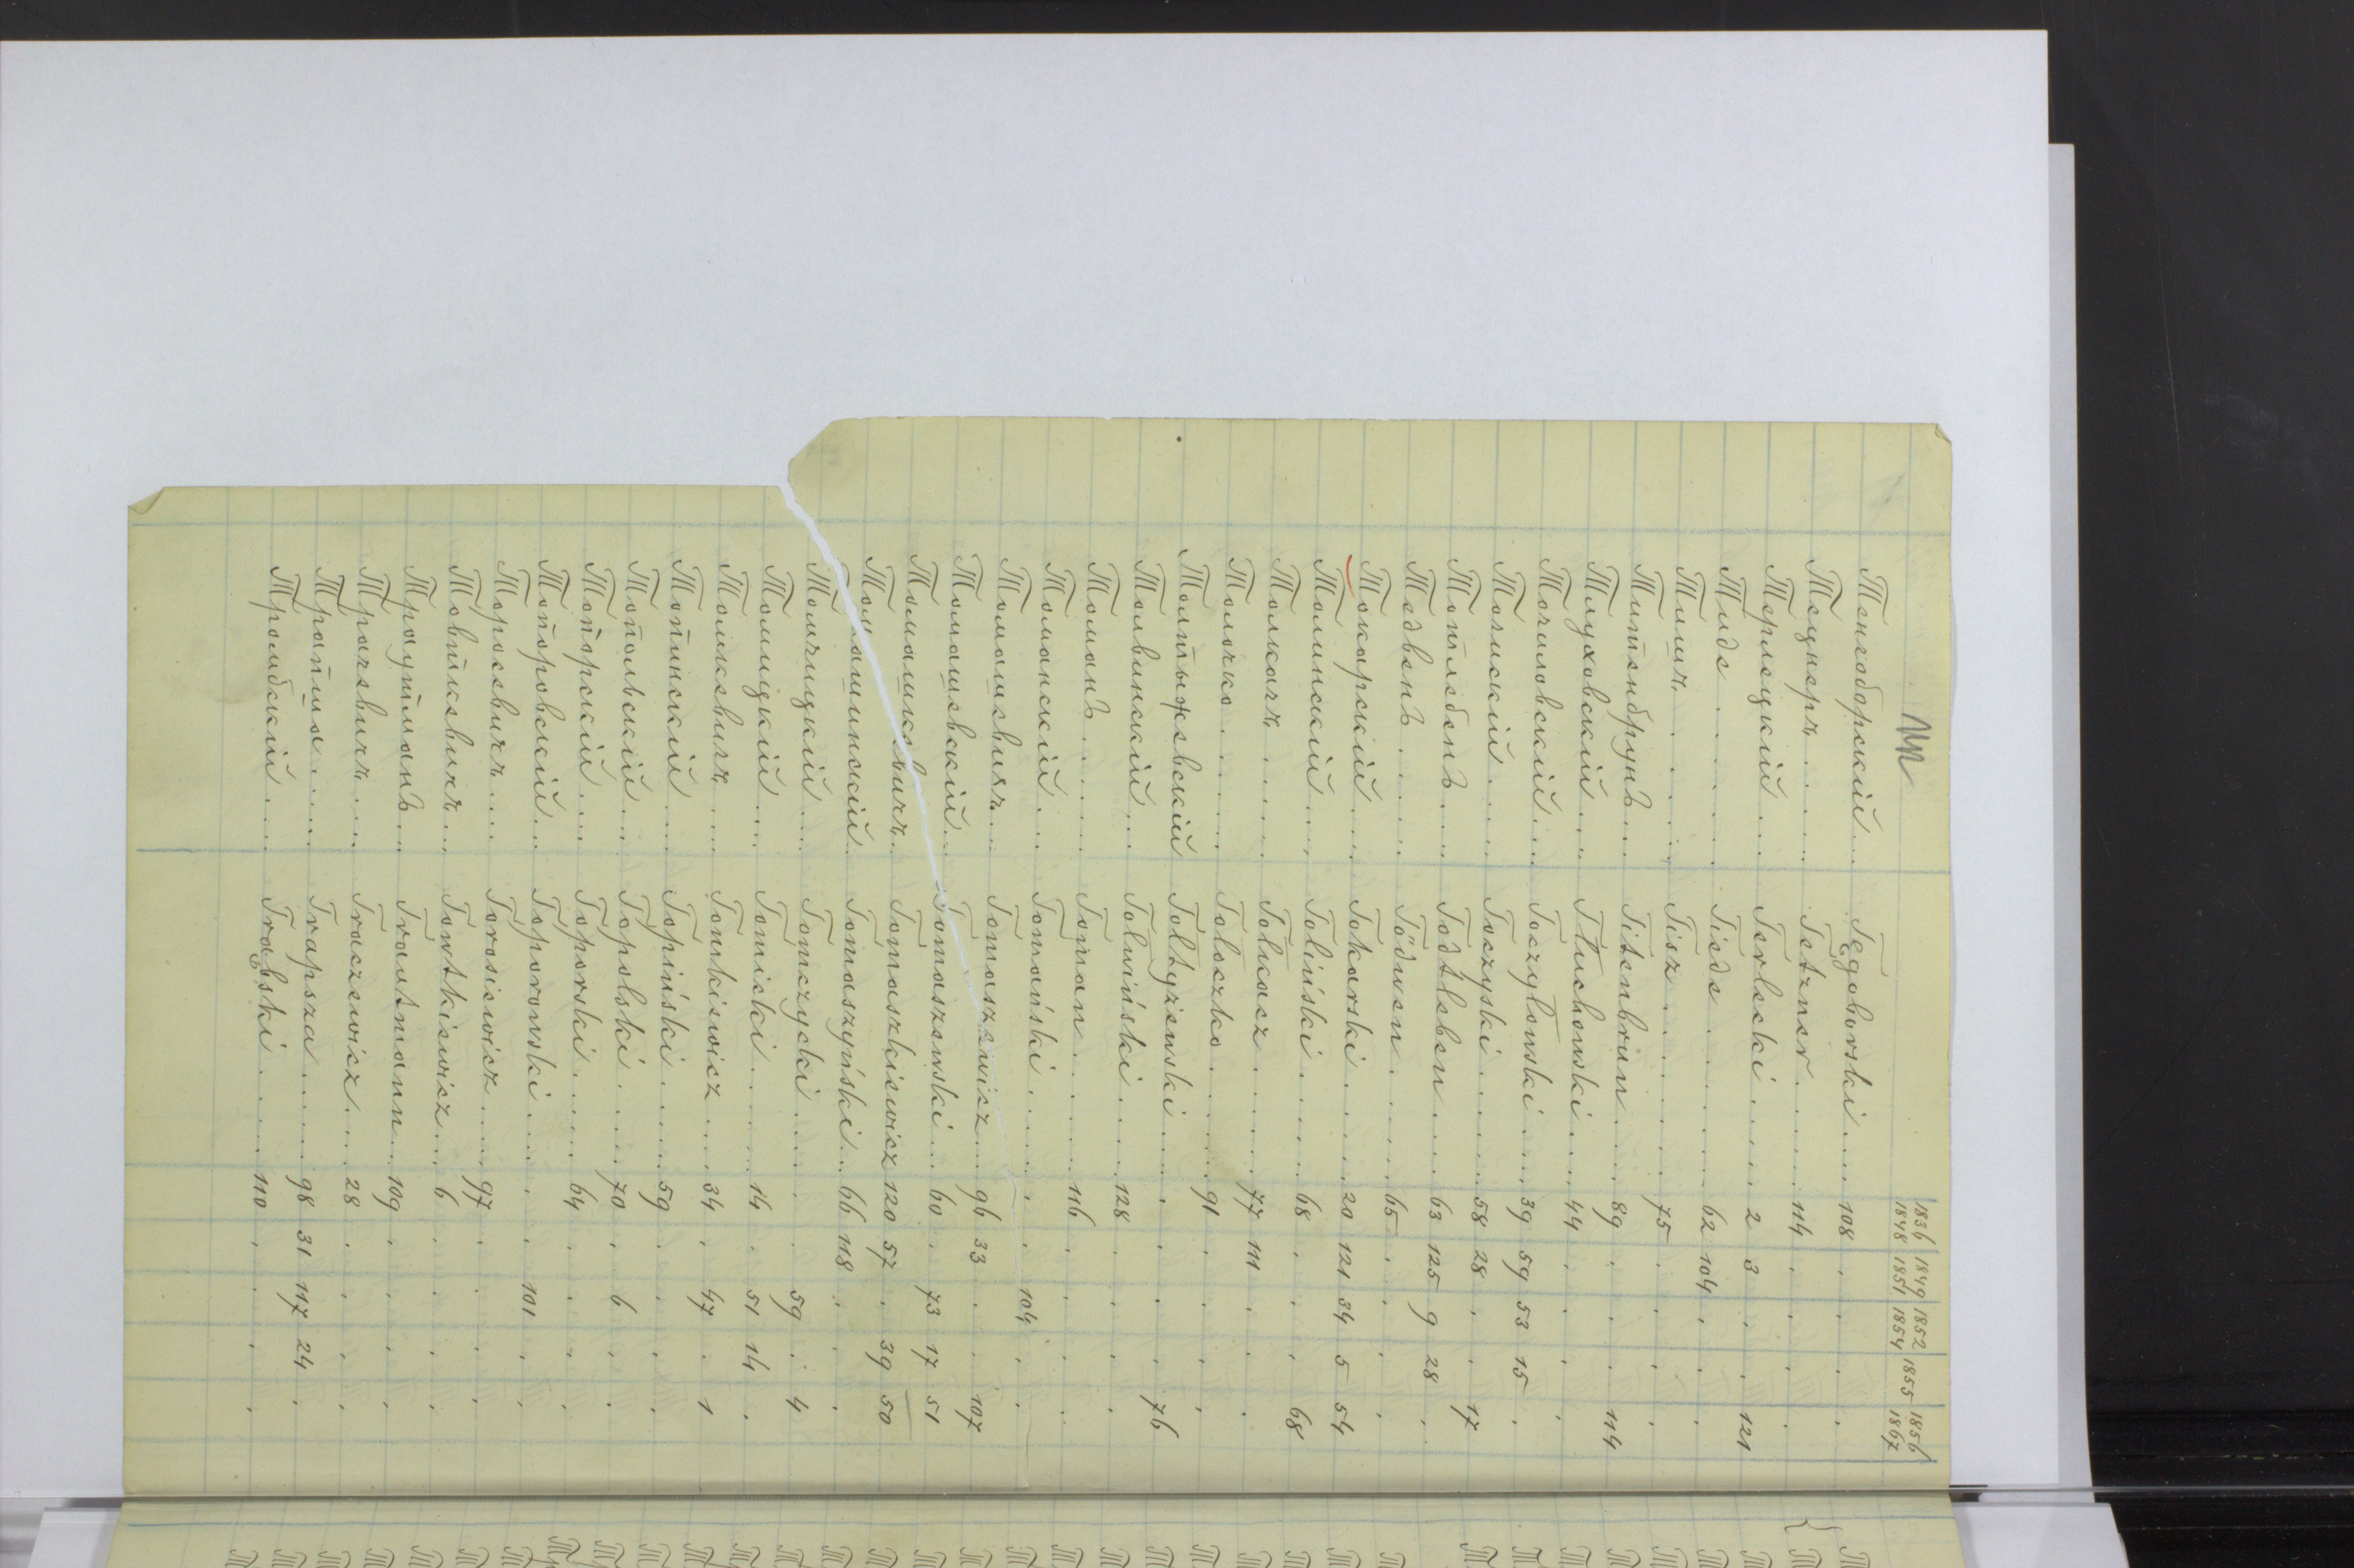 1836 1849 1852 1855 1856
1848 1851 1854 1867
Тенгоборскій Tęgoborski 108
Тецнеръ Tetzner 114
Терлецкій Terlecki 2 3 121
Тиде Tiede 62 104
Тишъ Tisz 75
Титенбрунъ Titenbrun 89 114
Тлуховскій Tłuchowski 44
Точиловскій Toczyłowski 39 59 53 15
Точискій Toczyski 58 28 17
Тотлебенъ Todtleben 63 125 9 28
Тедвенъ Tödwen 65
Токарскій Tokarski 20 121 34 5 54
Толинскій Toliński 68 68
Толкачъ Tolkacz 77 111
Толочко Toloczko 91
Толтыжевскій Toltyżewski 76
Толвинскій Tolwiński 128
Томанъ Toman 116
Томанскій Tomański 104
Томашевичъ Tomaszewicz 96 33 107
Томашевскій Tomaszewski 60 73 17 51
Томашкевичъ Tomaszkiewicz 120 57 39 50
Томашинскій Tomaszyński 66 118
Томчицкій Tomczycki 59 4
Томицкій Tomicki 14 51 14
Томкевичъ Tomkiewicz 34 47 1
Топинскій Topiński 59
Топольскій Topolski 70 6
Топорскій Toporski 64
Топоровскій Toporowski 101
Торосевичъ Torosiewicz 97
Товткевичъ Towtkiewicz 6
Траутманъ Trautmann 109
Трачевичъ Traczewicz 28
Трапша Trapsza 98 31 117 24
Тромбскій Trąbski 110